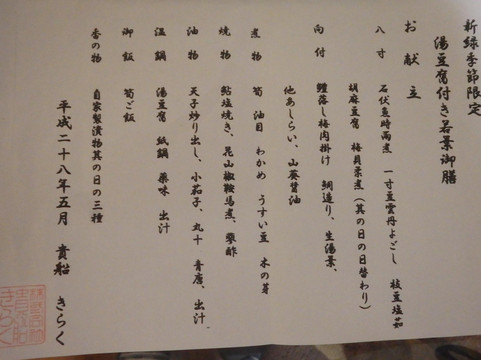 新緑季節限定
湯豆腐付き若葉御膳
お献立
八寸 石伏魚時雨煮 一寸豆雲丹よごし 枝豆塩茹
胡麻豆腐 梅貝柔煮(其の日の日替わり)
向付 鱧落し梅肉掛け 鯛造り、生湯葉、
他あしらい、山葵醤油
煮物 筍 油目 わかめ うすい豆 木の芽
焼物 鮎塩焼き、花山椒鞍馬煮、蓼酢
油物 天子炒り出し、小茄子、丸十 青唐、出汁
温鍋 湯豆腐 紙鍋 薬味 出汁
御飯 筍ご飯
香の物 自家製漬物其の日の三種
平成二十八年五月 貴船 きらく